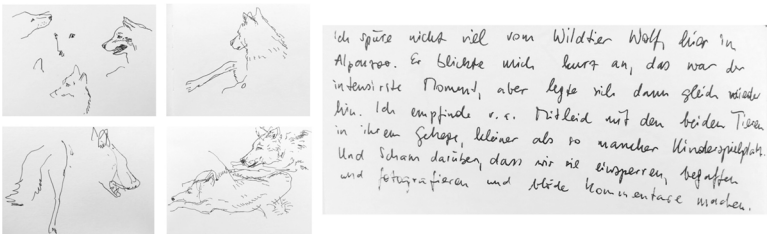 Ich spüre nicht viel vom Wildtier Wolf, hier im
Alpenzoo. Er blickte mich kurz an, das war der
intensivste Moment, aber legte sich dann gleich wieder
hin. Ich empfinde v.a. Mitleid mit den beiden Tieren
in ihrem Gehege, kleiner als so mancher Kinderspielplatz.
Und Scham darüber, dass wir sie einsperren, begaffen
und fotografieren und blöde Kommentare machen.